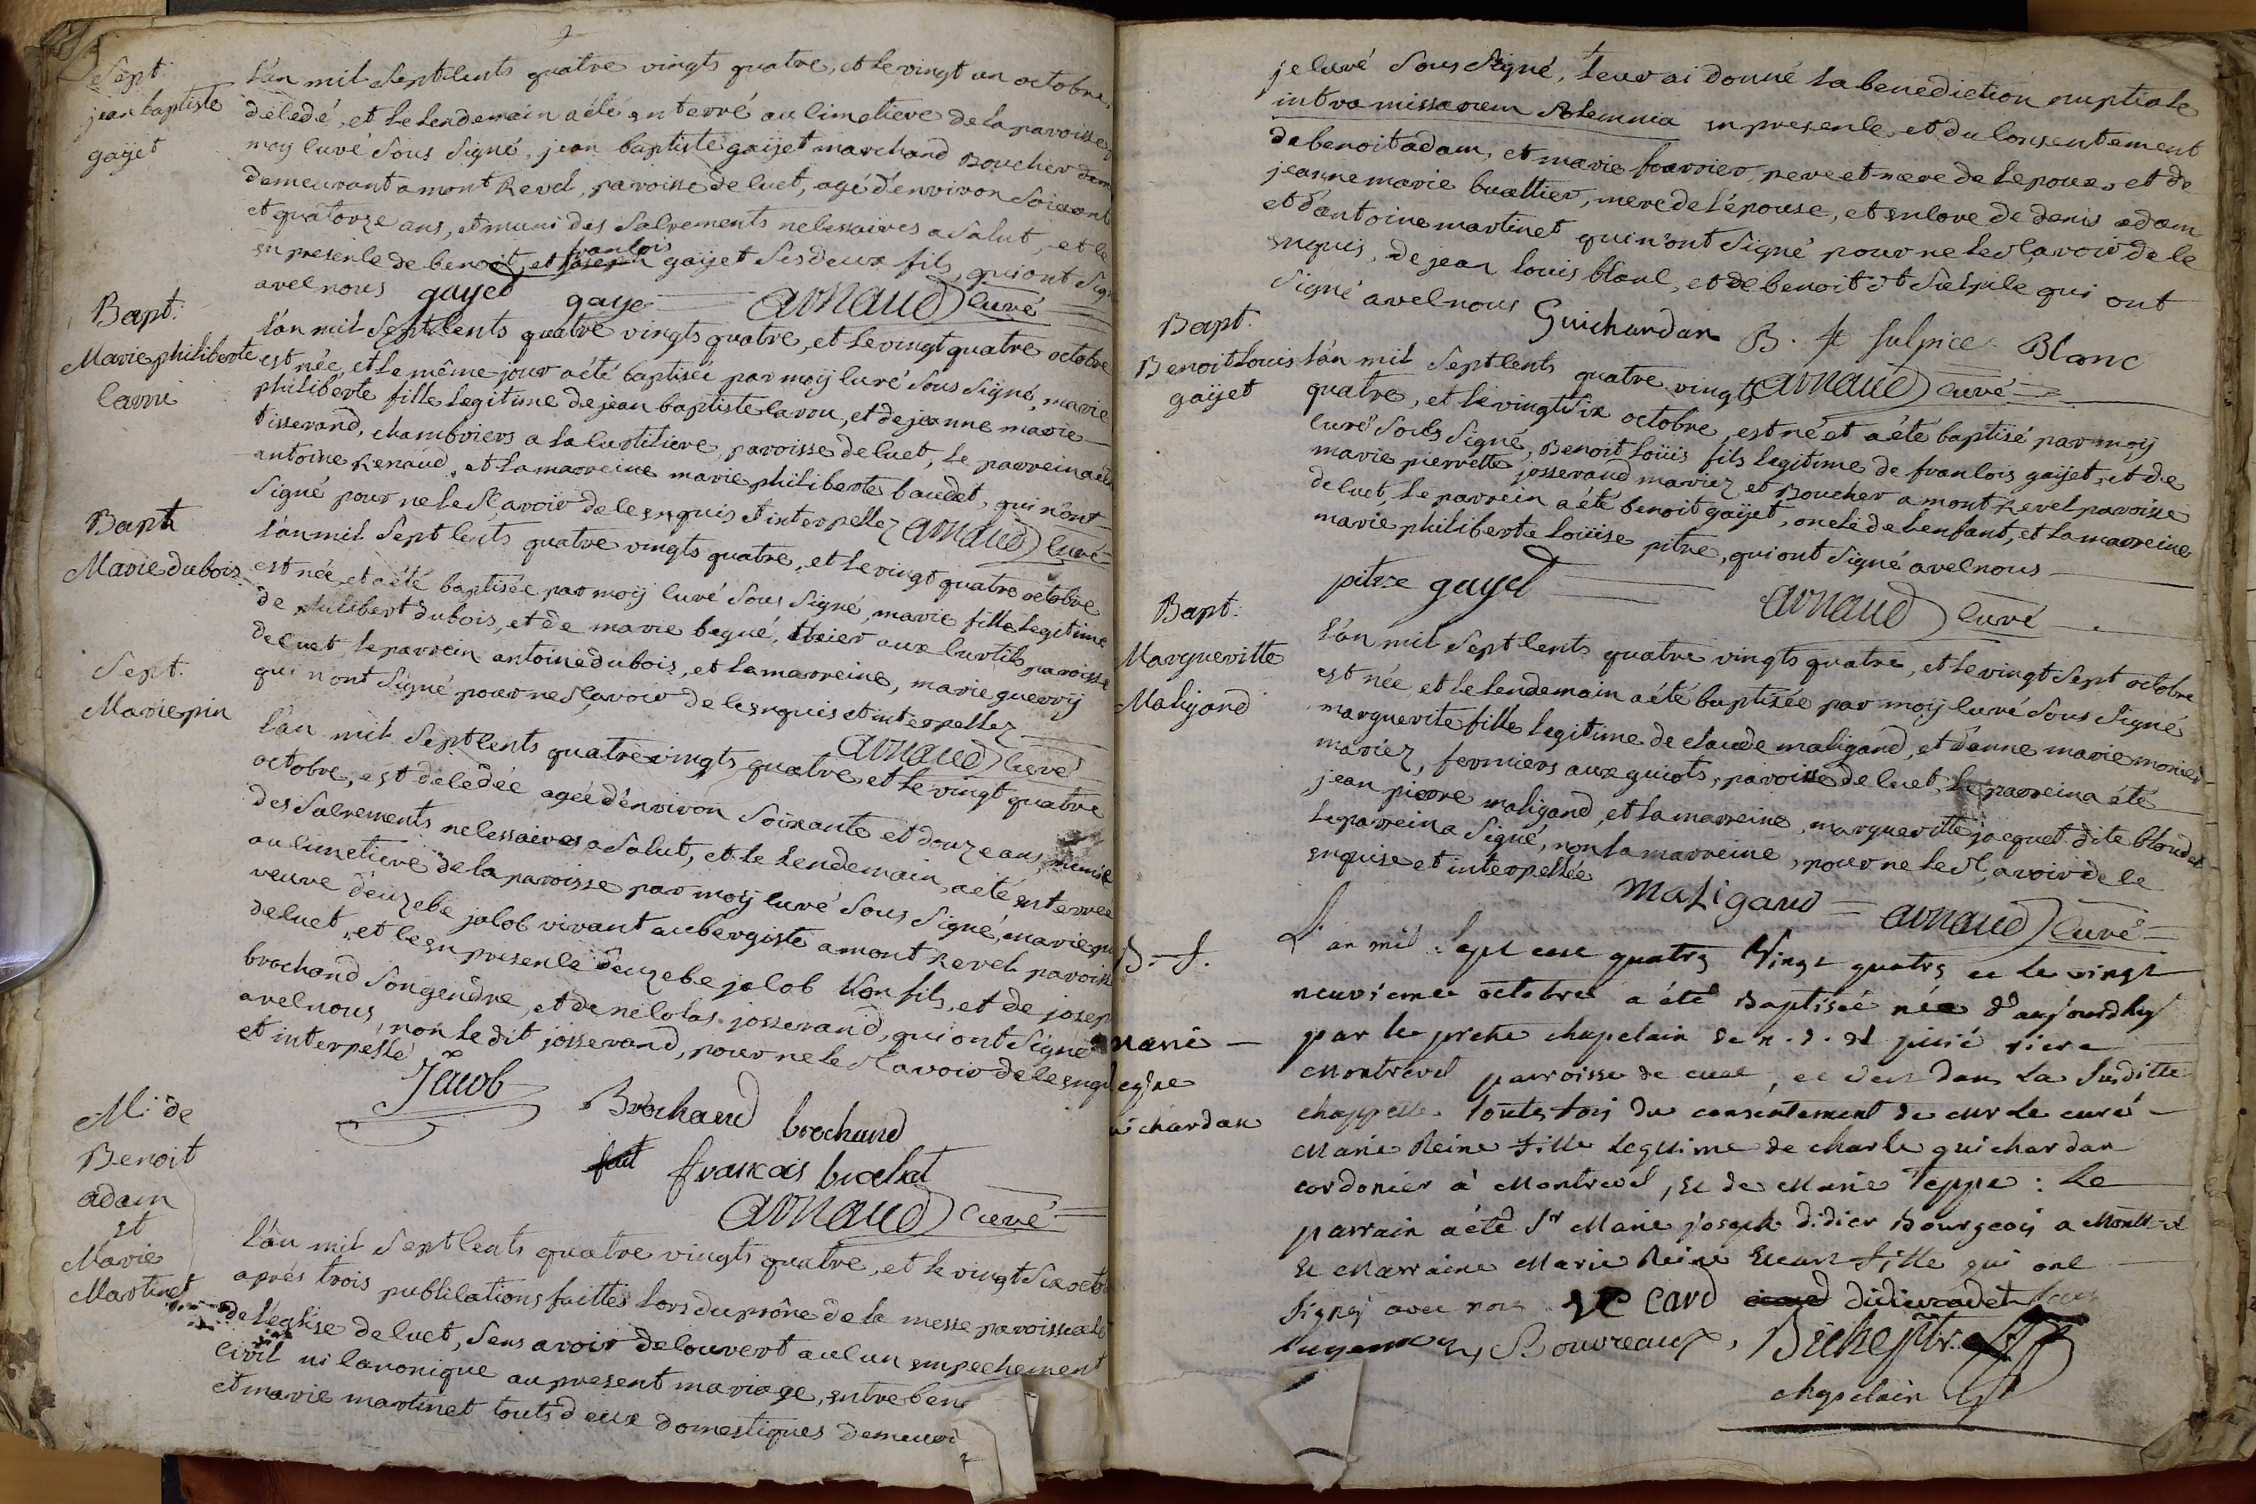 Sept.
jean baptiste
gaÿet
L'an mil Sept Cents quatre vingts quatre, et le vingt un octobre,
décédé, et le lendemain a été enterré au cimetiere de la paroisse
moy Curé Sous Signé, jean baptiste gaÿet marchand Boucher
demeurant a mont Revel, paroisse de Cuet, agé d'environ Soixante
et quatorze ans, et muni des Sacrements necessaires a Salut, et ce
en presence de benoit, et françois gaÿet Ses deux fils, qui ont Signé
avec nous gayet gaye Arnaud Curé
Bapt:
Marie philiberte
Carru
L'an mil Sept Cents quatre vingts quatre, et le vingt quatre octobre
est née, et le même jour a été baptisée par moy Curé Sous Signé, marie
philiberte fille legitime de jean baptiste Carru, et de jeanne marie
tisserand, chambriers a la Curtiliere, paroisse de Cuet, le parrein a été
antoine Renaud, et la marreine marie philiberte baudet, qui n'ont
Signé pour ne le Sçavoir de ce enquis et interpellez Arnaud Curé
Bapt
Marie dubois
L'an mil Sept Cents quatre vingts quatre, et le vingt quatre octobre
est née, et a été baptisée par moy Curé Sous Signé, marie fille legitime
de philibert dubois, et de marie begué, aux Curtils paroisse
de Cuet, le parrein antoine dubois, et la marreine, marie guerry
qui n'ont Signé pour ne Sçavoir de ce enquis et interpellez
Arnaud Curé
Sept.
Marie pin
L'an mil Sept Cents quatre vingts quatre et le vingt quatre
octobre, est décédée agée d'environ Soixante et douze ans, munie
des Sacrements necessaires a Salut, et le lendemain, a été enterrée
au cimetiere de la paroisse par moy Curé Sous Signé, marie
veuve d'euzebe jacob vivant aubergiste a mont Revel paroisse
de Cuet, et ce en presence d'euzebe jacob Son fils, et de josep
brochand Son gendre, et de nicolas josserand, qui ont Signé
avec nous, non le dit josserand, pour ne le Sçavoir de ce enquis
et interpellé
Jacob
Brochand brochand
françois
Arnaud Curé
M: de
Benoit
adam
et
Marie
Martinet
L'an mil Sept Cents quatre vingts quatre, et le vingt Six octobre
aprés trois publications faittes lors du prône de la messe paroissiale
de l'eglise de Cuet, Sans avoir decouvert aucun empechement
Civil ni Canonique au present mariage, entre ben
et marie martinet touts deux domestiques demeur
je Curé Sous Signé, leur ai donné la benediction nuptiale
intra missarum Solemnia en presence, et du Consentement
de benoit adam, et marie fournier, pere et mere de l'epoux, et de
jeanne marie buattier, mere de l'épouse, et encore de denis adam
et d'antoine martinet qui n'ont Signé pour ne le Sçavoir de ce
enquis, de jean louis blanc, et de benoit St Sulpice qui ont
Signé avec nous Guichardan B. St Sulpice Blanc
Arnaud Curé
Bapt.
Benoit Louis
gaÿet
L'an mil Sept Cents quatre vingts
quatre, et le vingt Six octobre, est né et a été baptisé par moy
Curé Sous Signé, Benoit Loüis fils legitime de françois gaÿet, et de
marie pierrette josserand mariez et Boucher a mont Revel paroisse
de Cuet, le parrein a été benoit gaÿet, oncle de l'enfant, et la marreine
marie philiberte Loüise pitre, qui ont Signé avec nous
pitre gayet
Arnaud Curé
Bapt:
Margueritte
Maligand
L'an mil Sept Cents quatre vingts quatre, et le vingt Sept octobre
est née, et le lendemain a été baptisée par moy Curé Sous Signé
marguerite fille legitime de claude maligand, et d'anne marie monier
mariez, fermiers aux guiots, paroisse de Cuet, le parrein a été
jean pierre maligand, et la marreine, margueritte jacquet dite blondet
le parrein a Signé, non la marreine, pour ne le Sçavoir de ce
enquise et interpellée MaLigand Arnaud Curé
B. f.
marie
reine
guichardan
L'an mil Sept cent quatre Vingt quatre et le vingt
neuvieme octobre a été Baptisée née d'aujourdhuy
par le pretre chapelain de n. d. de pitié riere
Montrevel parroisse de cuet, et ce dans La Susditte
chappelle toutefois du consentement de mr le curé
Marie Reine fille Legitime de charle guichardan
cordonier à Montrevel, et de Marie Teppe: Le
parrain a été Sr Marie joseph didier Bourgeois a Montrevel
et Marraine Marie Reine fille qui ont
Signés avec nous Card
Bouveaux,
chapelain